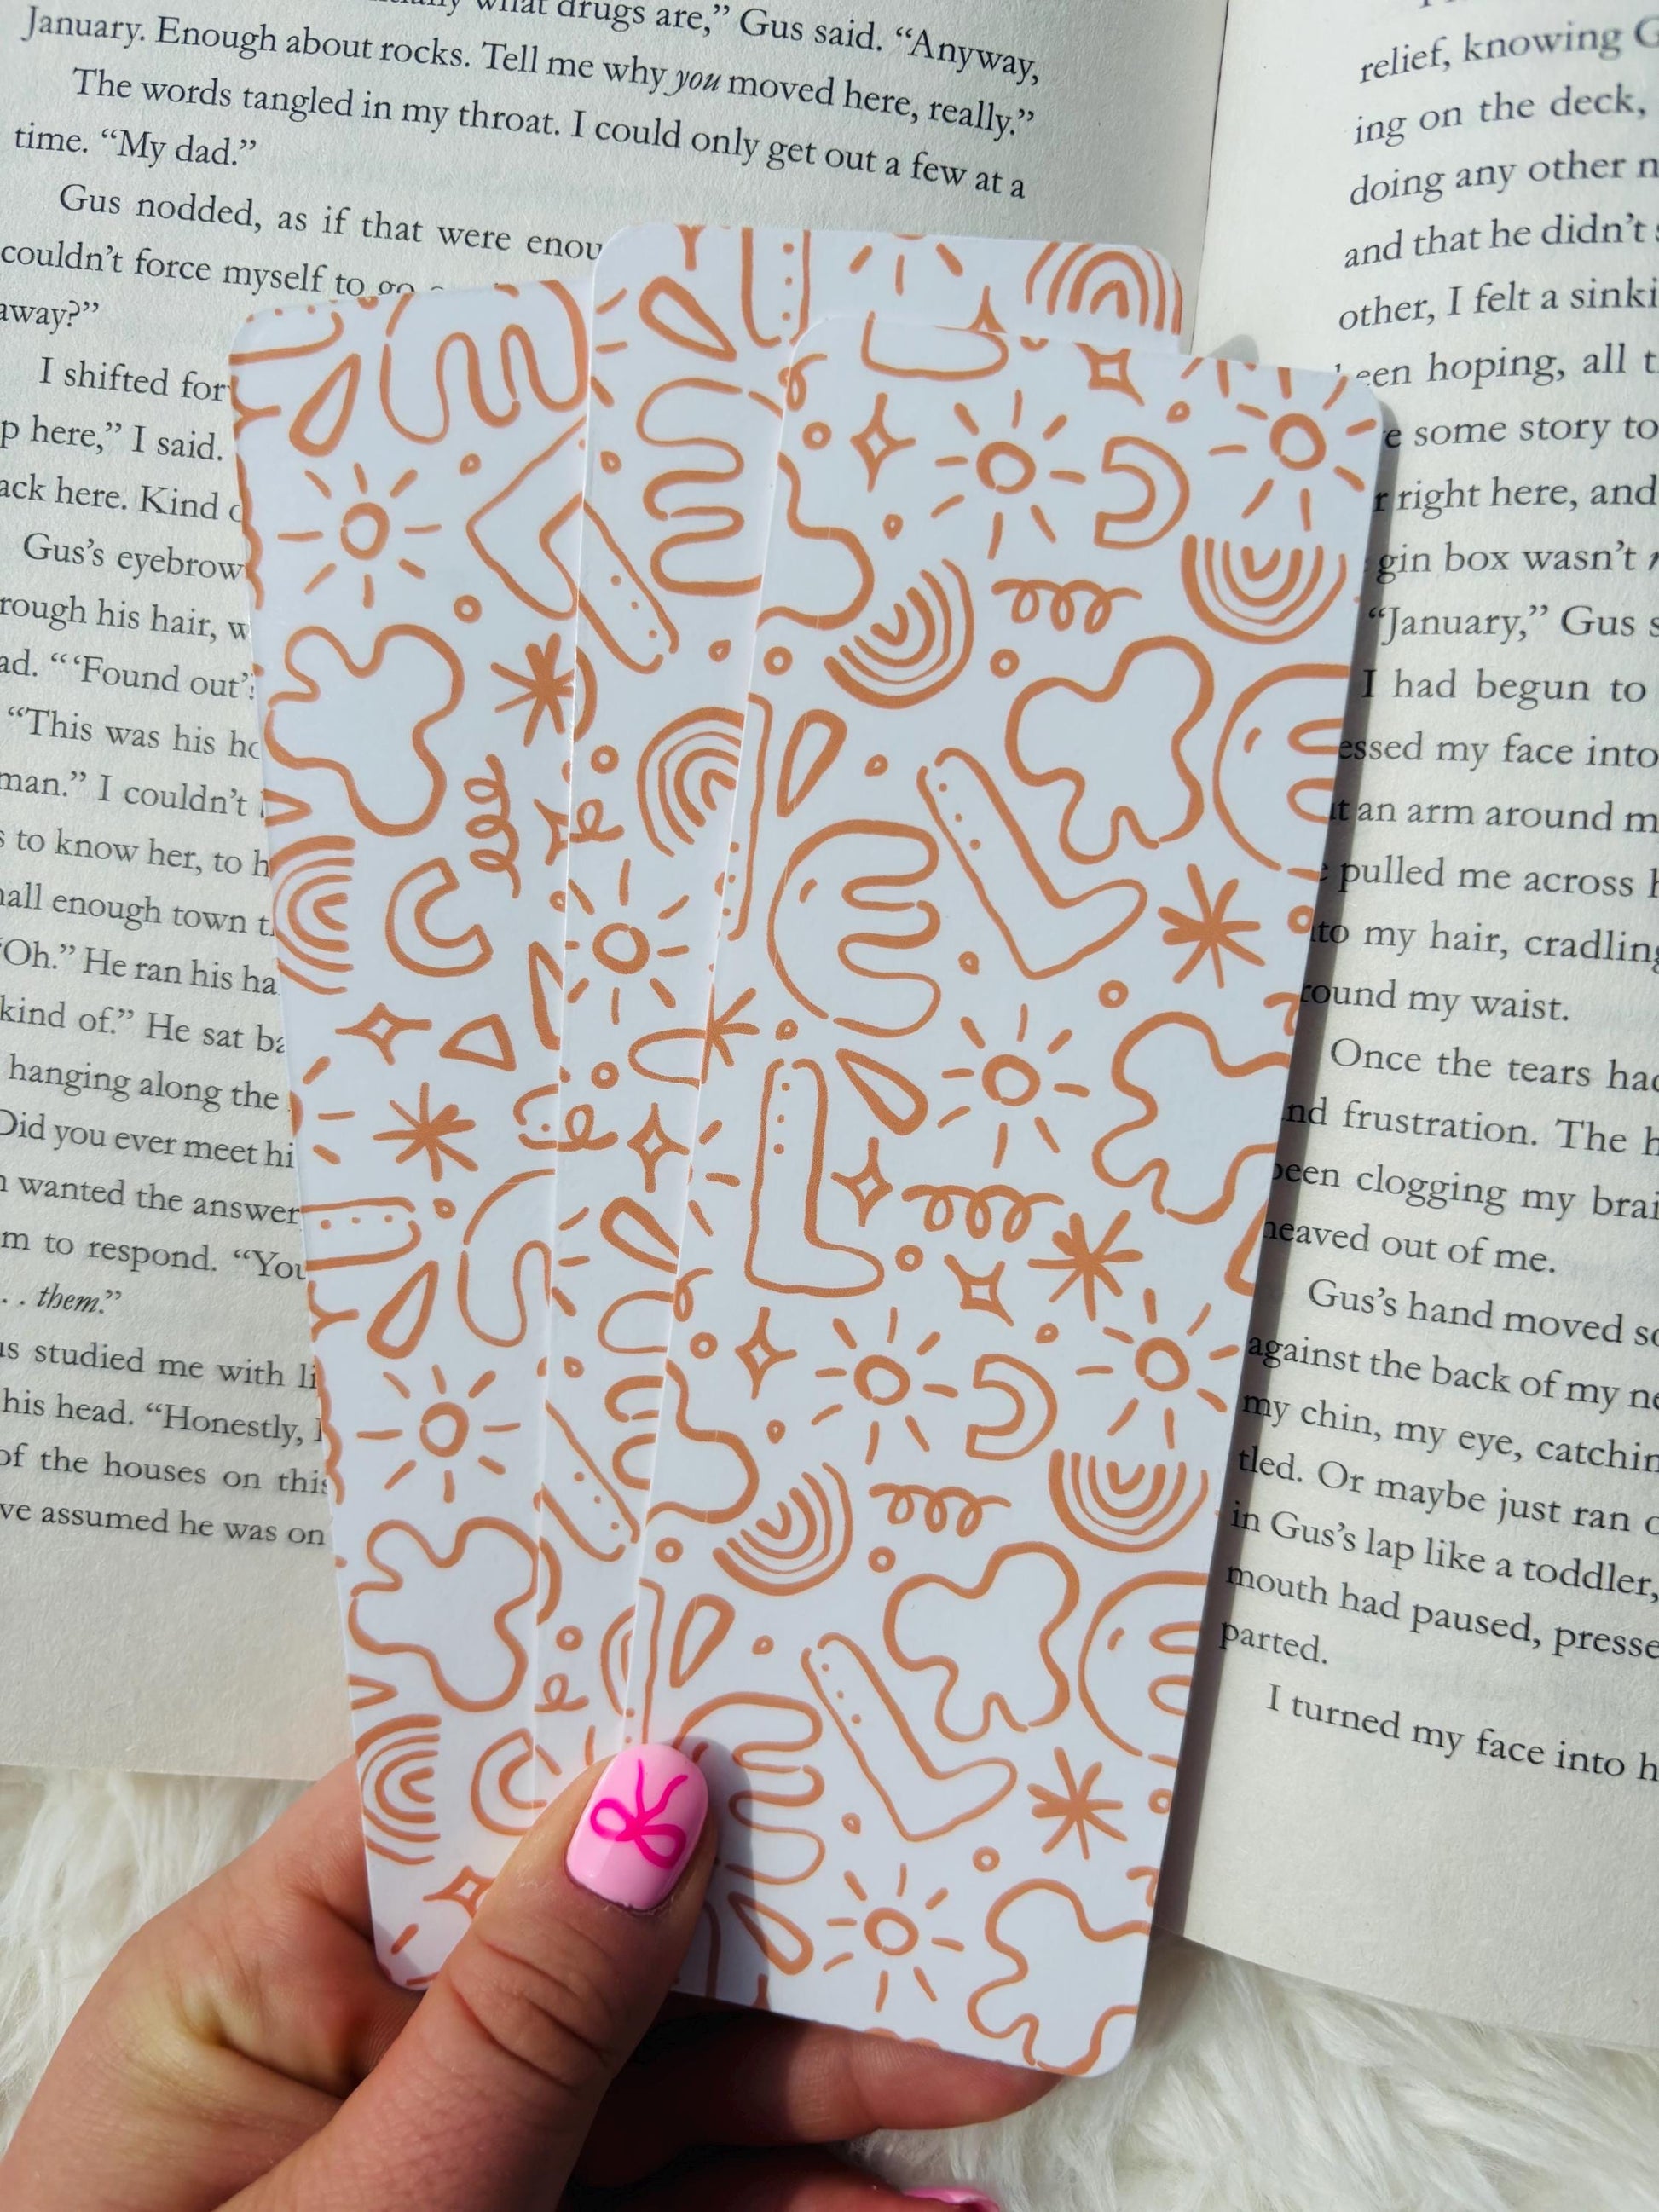 what drugs are,” Gus said. “Anyway,
January. Enough about rocks. Tell me why you moved here, really.”
The words tangled in my throat. I could only get out a few at a
time. “My dad.”
Gus nodded, as if that were
couldn’t force myself to go
away?”
I shifted
p here,” I said.
ack here. Kind
Gus’s eyebrow
rough his hair,
ad. “‘Found out’
“This was his
man.” I couldn’t
s to know her, to
all enough town
“Oh.” He ran his
kind of.” He sat
hanging along the
Did you ever meet
wanted the answer
m to respond. “You
. . them.”
us studied me with
his head. “Honestly,
of the houses on this
ve assumed he was on
relief, knowing G
ing on the deck,
doing any other
and that he didn’t
other, I felt a
een hoping, all
e some story to
r right here, and
gin box wasn’t
“January,” Gus
I had begun to
essed my face into
t an arm around
pulled me across
to my hair, cradling
round my waist.
Once the tears had
nd frustration. The
een clogging my
heaved out of me.
Gus’s hand moved
against the back of my
my chin, my eye,
tled. Or maybe just ran
in Gus’s lap like a toddler,
mouth had paused,
parted.
I turned my face into